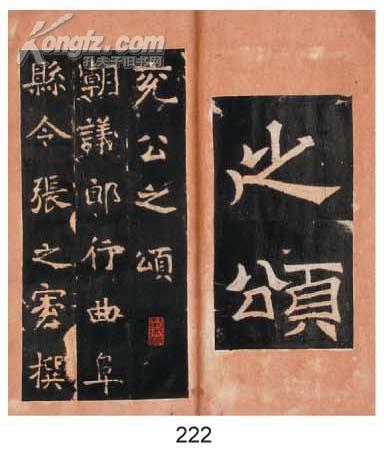 Kongfz.com
孔夫子旧书网
之頌
兖公之頌
朝議郎行曲阜
縣令張之宏撰
222